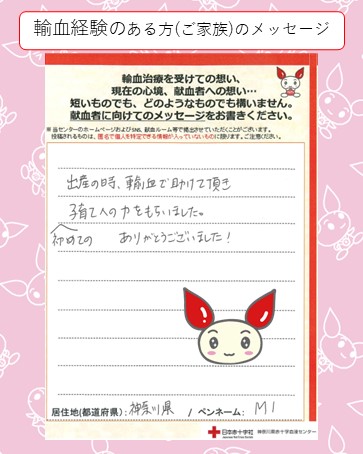 輸血経験のある方(ご家族)のメッセージ
輸血治療を受けての想い、
現在の心境、献血者への想い…
短いものでも、どのようなものでも構いません。
献血者に向けてのメッセージをお書きください。
※当センターのホームページおよびSNS、献血ルーム等で掲出させていただくことがございます。
投稿されるものは、匿名で個人を特定できる情報が入っていないものに限ります。ご注意ください。
出産の時、輸血で助けて頂き
子育て人の力をもらいました。
初めての ありがとうございました!
居住地(都道府県): 神奈川県 / ペンネーム: MI
日本赤十字社 神奈川県赤十字血液センター